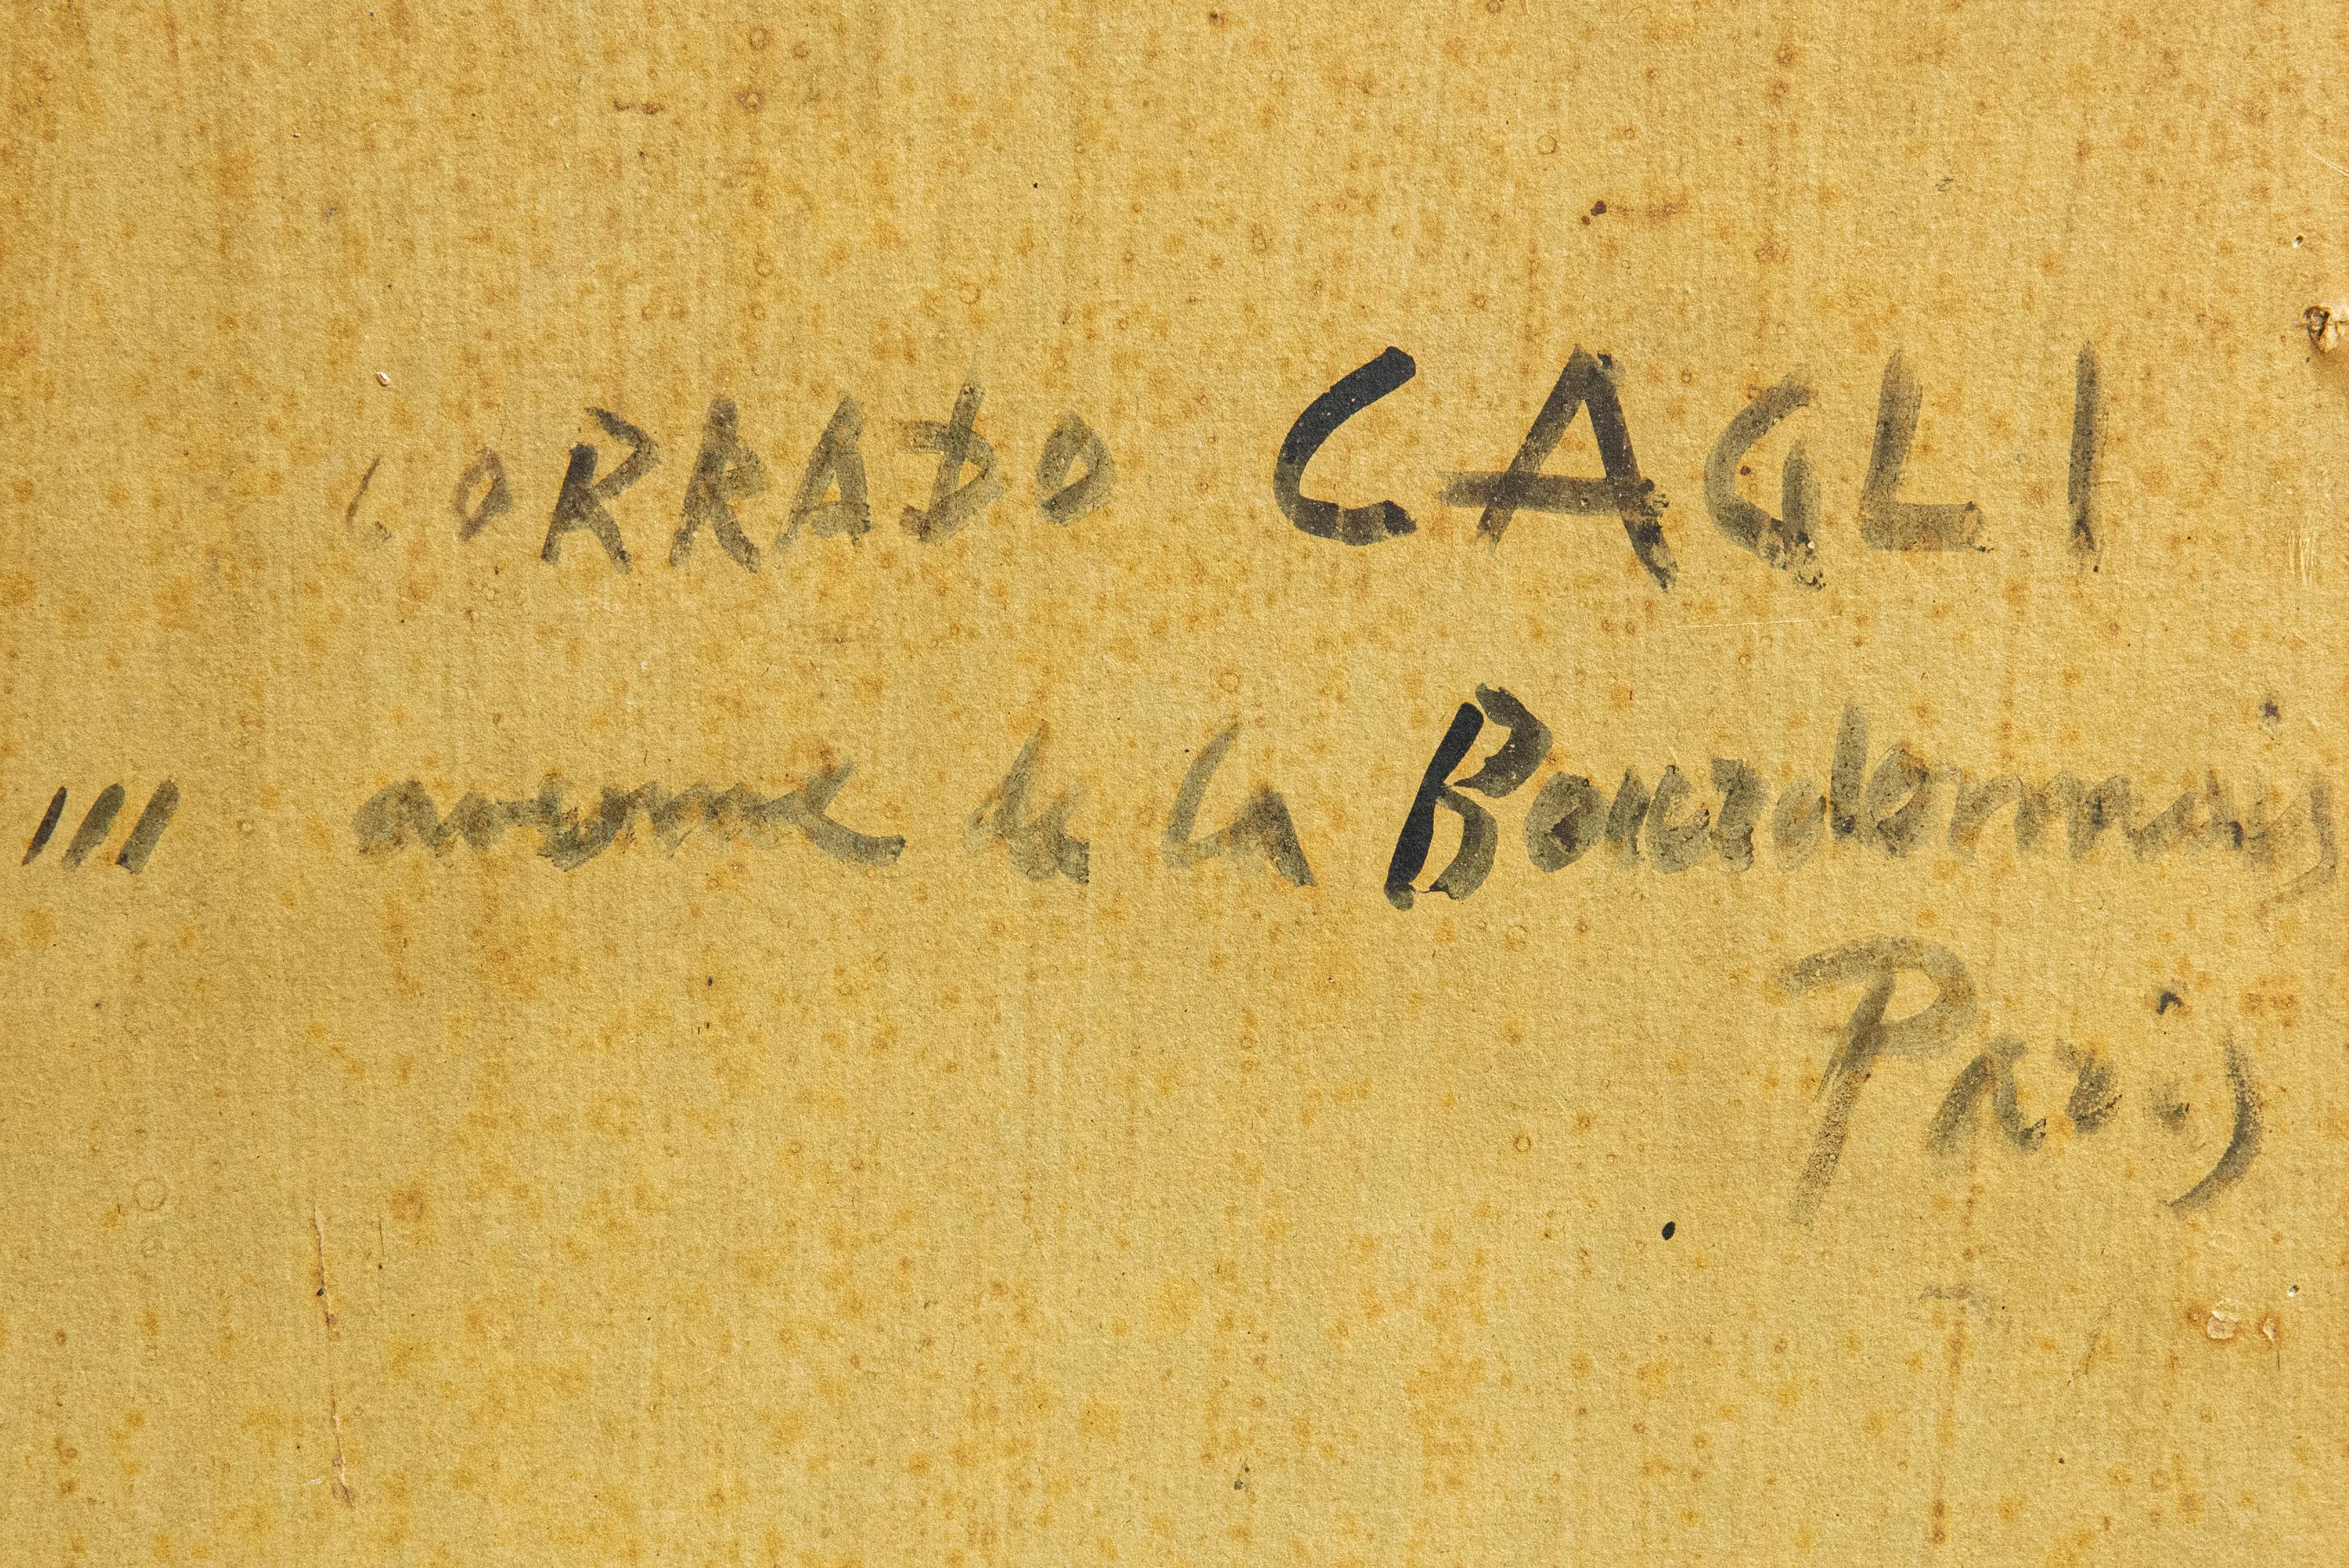 CORRADO CAGLI
111 avenue de la Bourdonnais
Paris